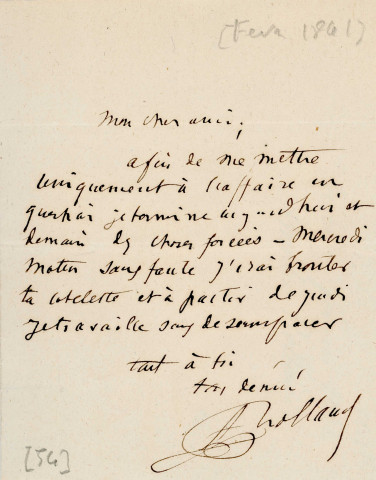 [Fevr 1841]
Mon cher ami,
afin de me mettre
uniquement à l'affaire en
question je termine aujourd'hui et
demain des choses forcées – Mercredi
matin sans faute j'irai brouter
ta cotelette et à partir de jeudi
je travaille sans desemparer
tout à toi
ton
[54]